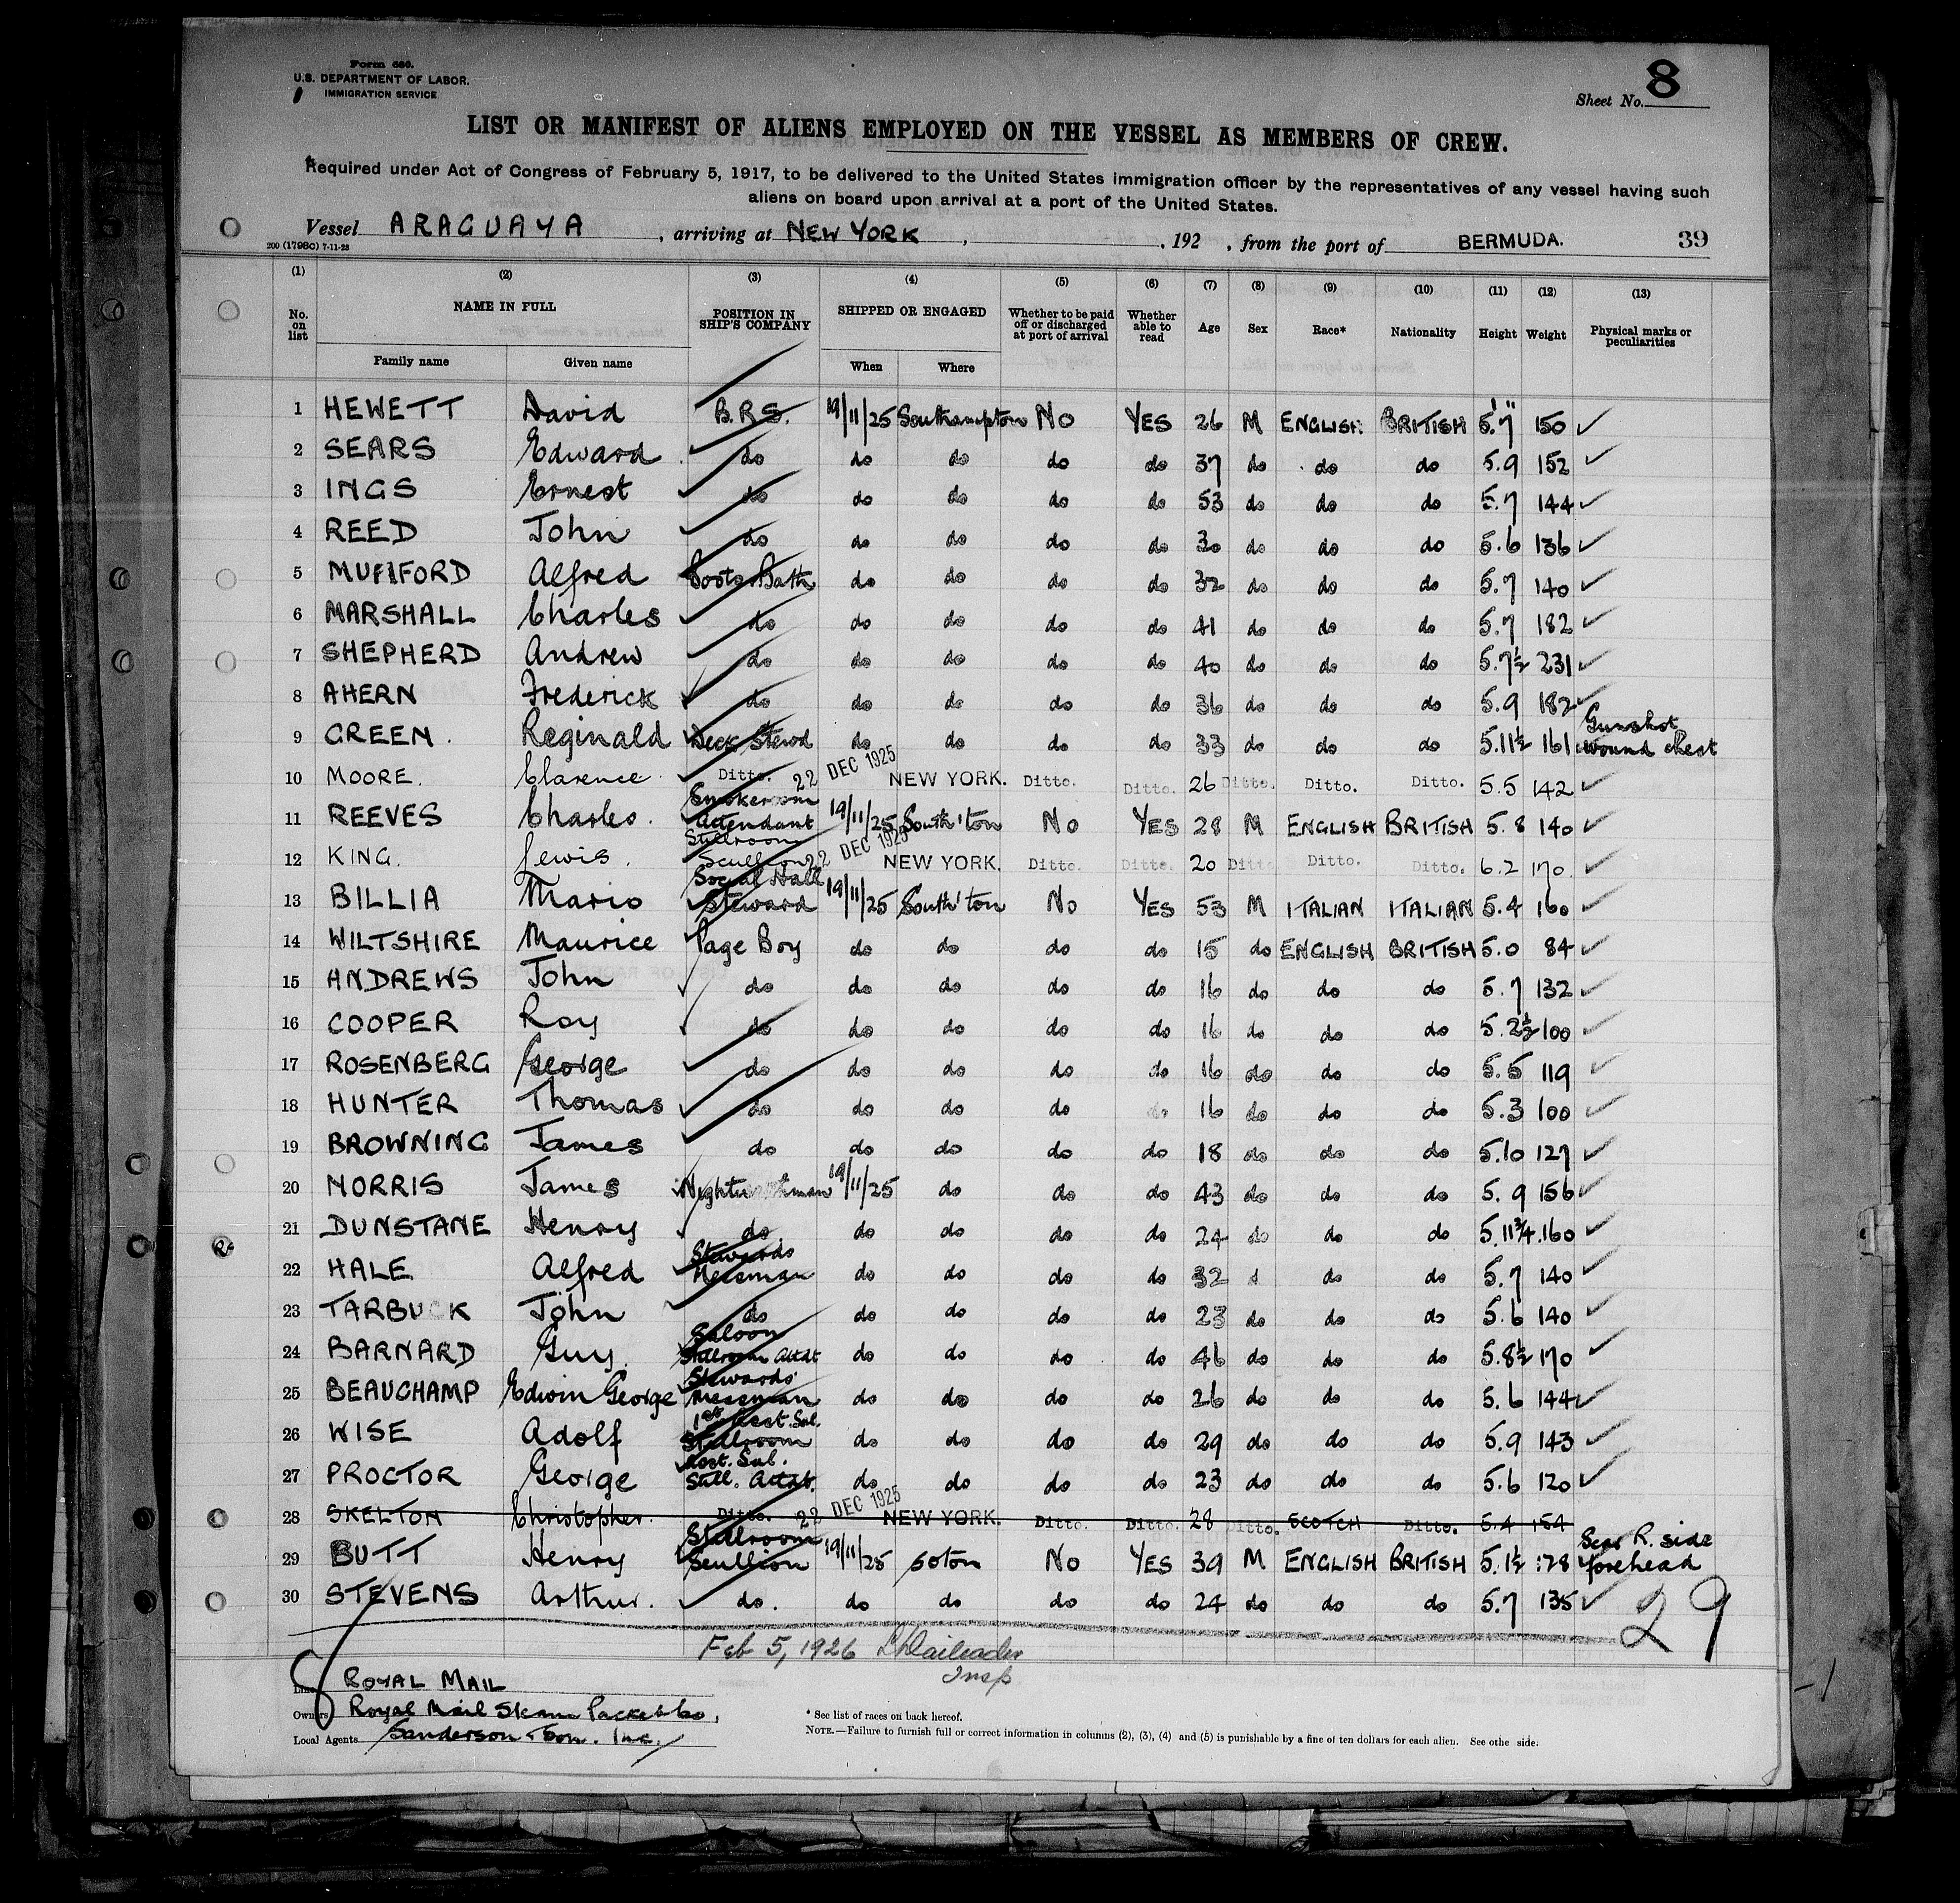 Form 680.
U.S. DEPARTMENT OF LABOR.
IMMIGRATION SERVICE
Sheet No. 8
LIST OR MANIFEST OF ALIENS EMPLOYED ON THE VESSEL AS MEMBERS OF CREW.
Required under Act of Congress of February 5, 1917, to be delivered to the United States immigration officer by the representatives of any vessel having such
aliens on board upon arrival at a port of the United States.
Vessel ARAGUAYA, arriving at NEW YORK, , 192 , from the port of BERMUDA. 39
200 (1798C) 7-11-23
(1) (2) (3) (4) (5) (6) (7) (8) (9) (10) (11) (12) (13)
No. on list NAME IN FULL POSITION IN SHIP'S COMPANY SHIPPED OR ENGAGED Whether to be paid off or discharged at port of arrival Whether able to read Age Sex Race* Nationality Height Weight Physical marks or peculiarities
Family name Given name When Where
1 HEWETT David B.R.S. 19/11/25 Southampton No YES 26 M ENGLISH BRITISH 5.'7" 150 ✓
2 SEARS Edward do do do do do 37 do do do 5.9 152 ✓
3 INGS Ernest do do do do do 53 do do do 5.7 144 ✓
4 REED John do do do do do 30 do do do 5.6 136 ✓
5 Alfred Boots & Bath do do do do 32 do do do 5.7 140 ✓
6 MARSHALL Charles do do do do do 41 do do do 5.7 182 ✓
7 SHEPHERD Andrew do do do do do 40 do do do 5.7½ 231 ✓
8 AHERN Frederick do do do do do 36 do do do 5.9 182 ✓
9 GREEN. Reginald Deck Stewd do do do do 33 do do do 5.11½ 161 Gunshot wound chest
10 MOORE. Clarence. Ditto. 22 DEC 1925 NEW YORK. Ditto. Ditto. 26 Ditto. Ditto. Ditto. 5.5 142 ✓
11 REEVES Charles. Smokeroom Attendant 19/11/25 South'ton No YES 28 M ENGLISH BRITISH 5.8 140 ✓
12 KING. Lewis. Stillroom Scullion 22 DEC 1925 NEW YORK. Ditto. Ditto. 20 Ditto Ditto. Ditto. 6.2 170. ✓
13 BILLIA Mario Social Hall Steward 19/11/25 South'ton No YES 53 M ITALIAN ITALIAN 5.4 160 ✓
14 WILTSHIRE Maurice Page Boy do do do do 15 do ENGLISH BRITISH 5.0 84 ✓
15 ANDREWS John do do do do do 16 do do do 5.7 132 ✓
16 COOPER Roy do do do do do 16 do do do 5.2½ 100 ✓
17 ROSENBERG George do do do do do 16 do do do 5.5 119 ✓
18 HUNTER Thomas do do do do do 16 do do do 5.3 100 ✓
19 BROWNING James do do do do do 18 do do do 5.10 127 ✓
20 NORRIS James 19/11/25 do do do 43 do do do 5.9 156 ✓
21 DUNSTANE Henry do. do do do do 24 do do do 5.11¾. 160 ✓
22 HALE Alfred Stewards Messman do do do do 32 d do do 5.7 140 ✓
23 TARBUCK John do do do do do 23 do do do 5.6 140 ✓
24 BARNARD Guy. Saloon Stillroom Attdt do do do do 46 do do do 5.8½ 170 ✓
25 BEAUCHAMP Edwin George Stewards' Messman do do do do 26 do do do 5.6 144 ✓
26 WISE Adolf 1st Asst. Sal. Stillroom do do do do 29 do do do 5.9 143 ✓
27 PROCTOR George Asst. Sal. Still. Attdt. do do do do 23 do do do 5.6 120 ✓
28 SKELTON Christopher. Ditto. 22 DEC 1925 NEW YORK. Ditto. Ditto. 28 Ditto. SCOTCH Ditto. 5.4 154
29 BUTT Henry Stillroom Scullion 19/11/25 Soton No YES 39 M ENGLISH BRITISH 5.1½ 128 Scar R. side forehead
30 STEVENS Arthur. do. do do do do 24 do do do 5.7 135 ✓
29
Feb 5, 1926
Insp
Line ROYAL MAIL
Owners Royal Mail Steam Packet Co,
Local Agents Sanderson & Son. Inc.
* See list of races on back hereof.
NOTE.—Failure to furnish full or correct information in columns (2), (3), (4) and (5) is punishable by a fine of ten dollars for each alien. See othe side.